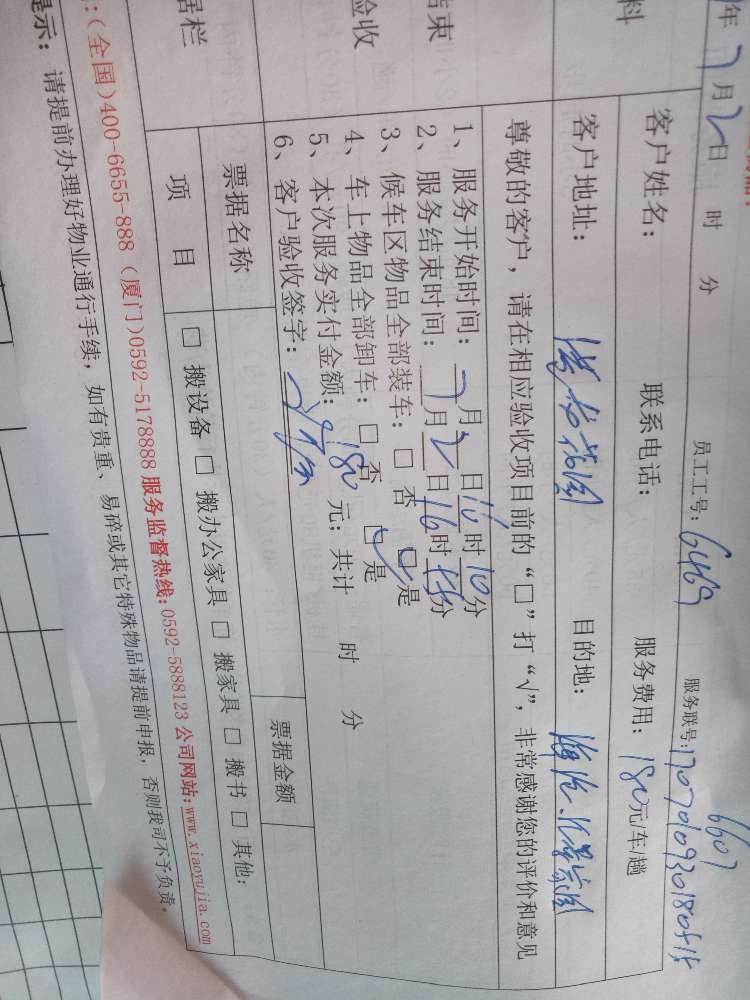 年7月2日 时 分 员工工号：6469 服务联号：
6607
料
客户姓名： 联系电话： 服务费用：180元/车/趟
客户地址： 目的地：
尊敬的客户，请在相应验收项目前的“□”打“√”，非常感谢您的评价和意见
结束
验收
1、服务开始时间：7月2日16时10分
2、服务结束时间：7月2日16时45分
3、候车区物品全部装车：□ 否 □ 是
4、车上物品全部卸车：□ 否 □ 是
5、本次服务实付金额：180元；共计 时 分
6、客户验收签字：
据栏
票据名称 票据金额
项 目 □ 搬设备 □ 搬办公家具 □ 搬家具 □ 搬书 □ 其他：
：（全国）400-6655-888（厦门）0592-5178888 服务监督热线：0592-5888123 公司网站：www.xiaoyujia.com
提示：请提前办理好物业通行手续，如有贵重、易碎或其它特殊物品请提前申报，否则我司不予负责。